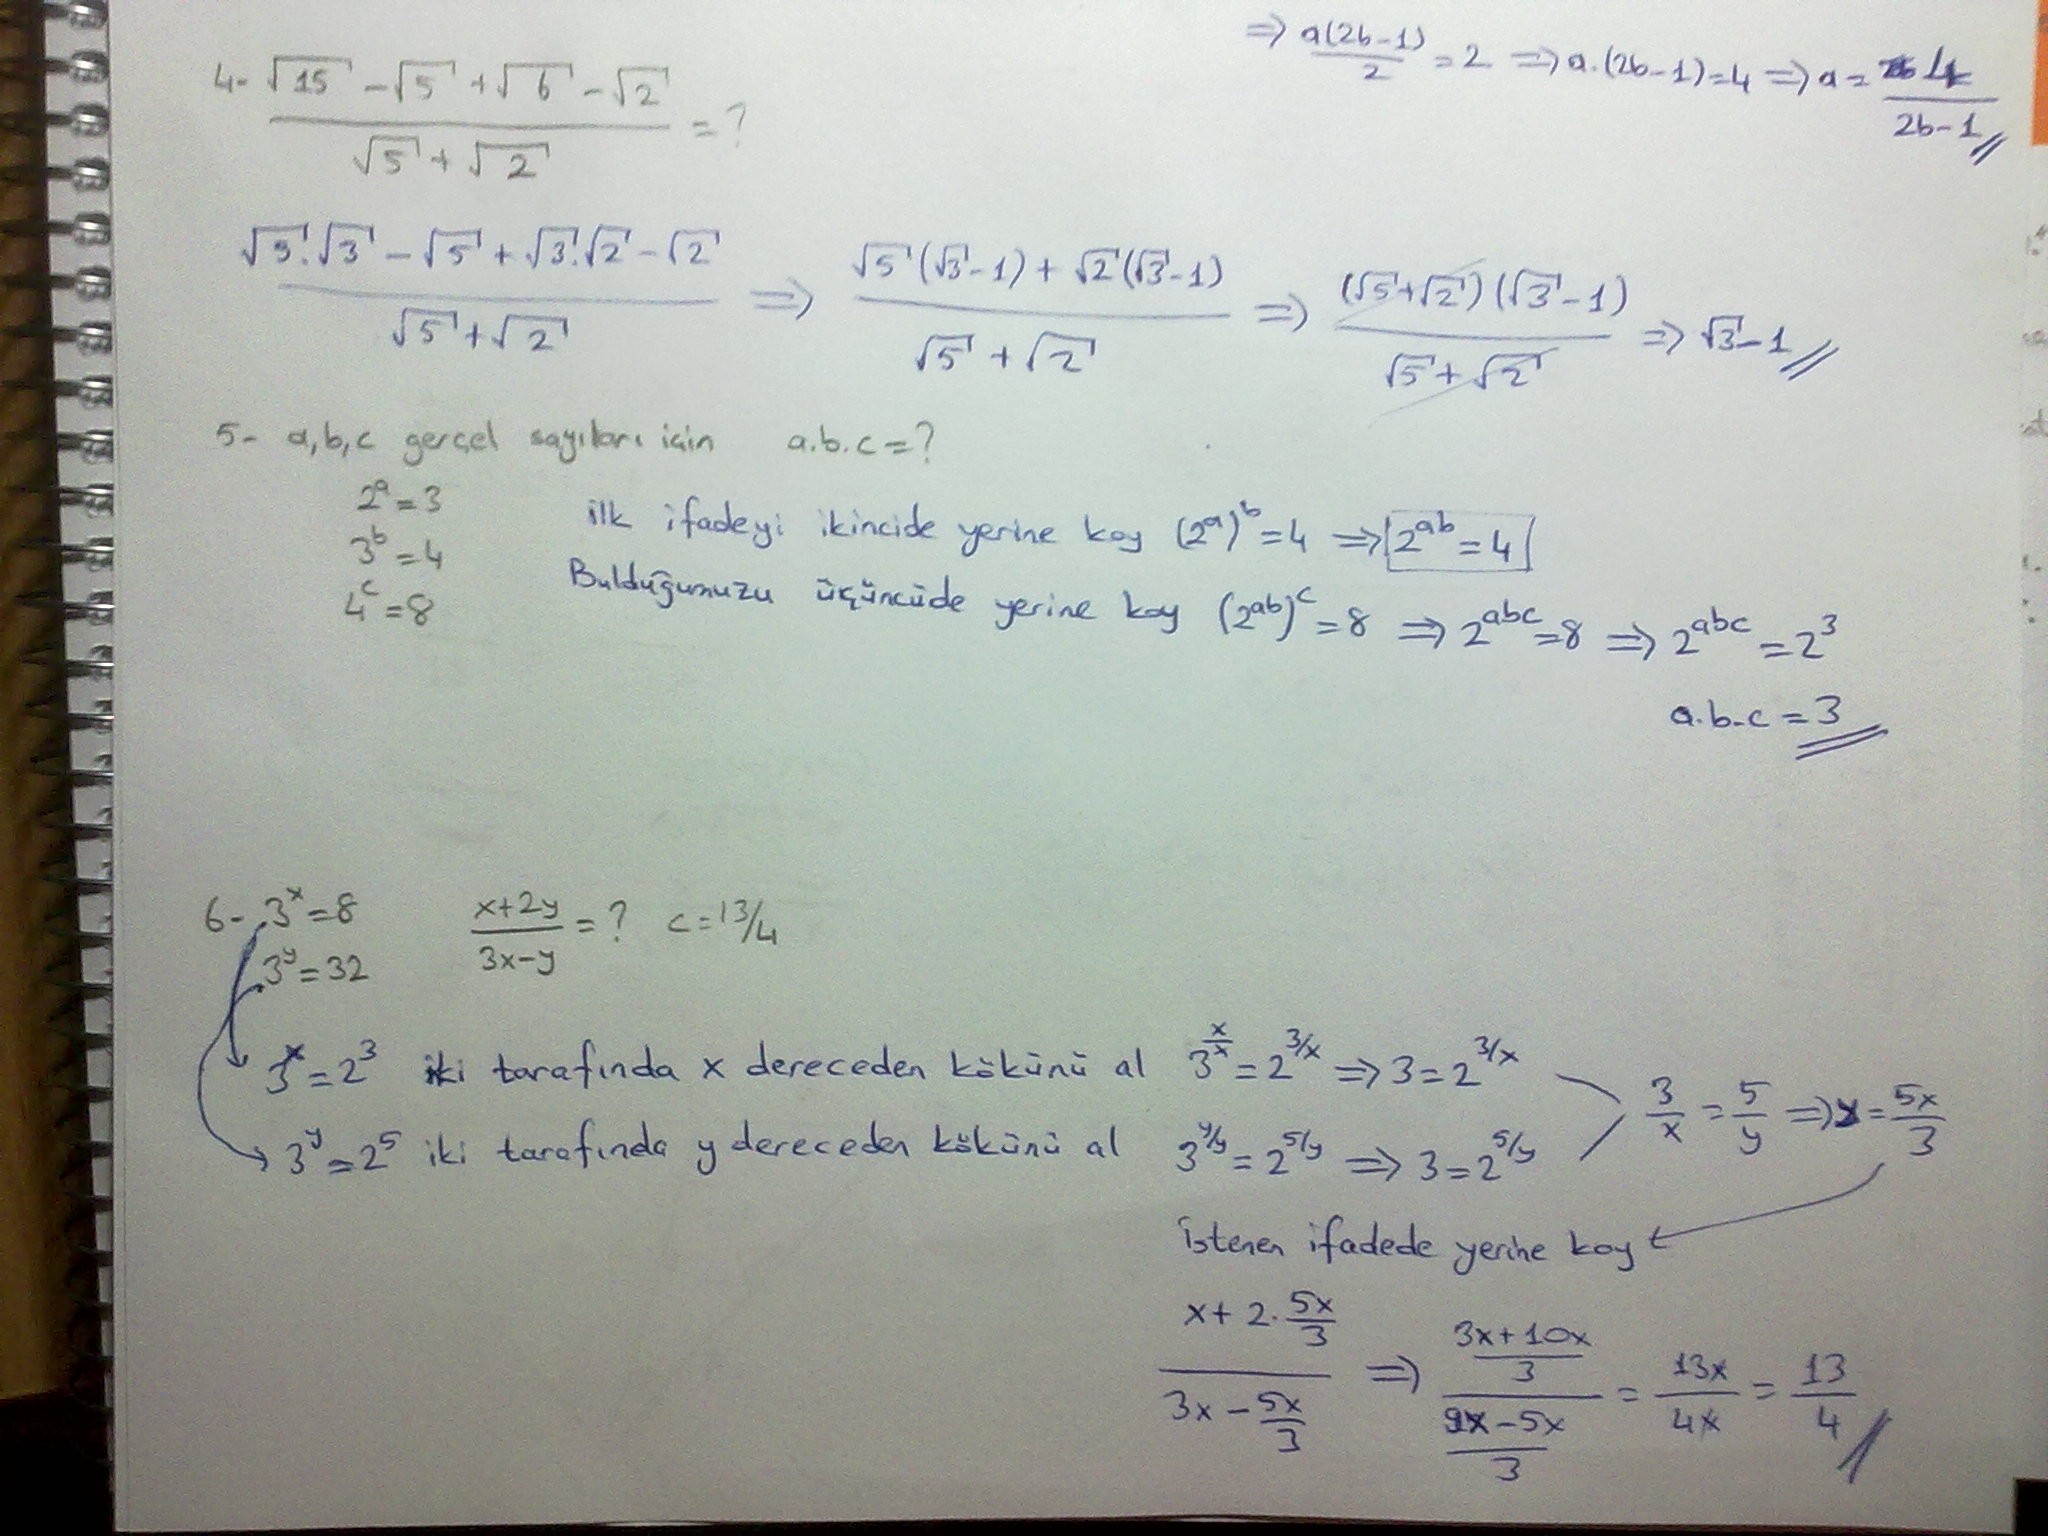 ⇒ a(2b-1)/2 = 2 ⇒ a.(2b-1)=4 ⇒ a = 4/(2b-1)
4- (√15 - √5 + √6 - √2)/(√5 + √2) = ?
(√5.√3 - √5 + √3.√2 - √2)/(√5 + √2) ⇒ (√5(√3-1) + √2(√3-1))/(√5 + √2) ⇒ ((√5+√2)(√3-1))/(√5+√2) ⇒ √3-1
5- a,b,c gerçel sayıları için a.b.c=?
2^a=3
3^b=4
4^c=8
ilk ifadeyi ikincide yerine koy (2^a)^b=4 ⇒ 2^ab=4
Bulduğumuzu üçüncüde yerine koy (2^ab)^c=8 ⇒ 2^abc=8 ⇒ 2^abc=2^3
a.b.c=3
6- 3^x=8 (x+2y)/(3x-y) = ? c=13/4
3^y=32
3^x=2^3 iki tarafında x dereceden kökünü al 3^(x/x)=2^(3/x) ⇒ 3=2^(3/x)
3/x = 5/y ⇒ y = 5x/3
3^y=2^5 iki tarafında y dereceden kökünü al 3^(y/y)=2^(5/y) ⇒ 3=2^(5/y)
İstenen ifadede yerine koy
(x+2.5x/3)/(3x-5x/3) ⇒ ((3x+10x)/3)/((9x-5x)/3) = 13x/4x = 13/4